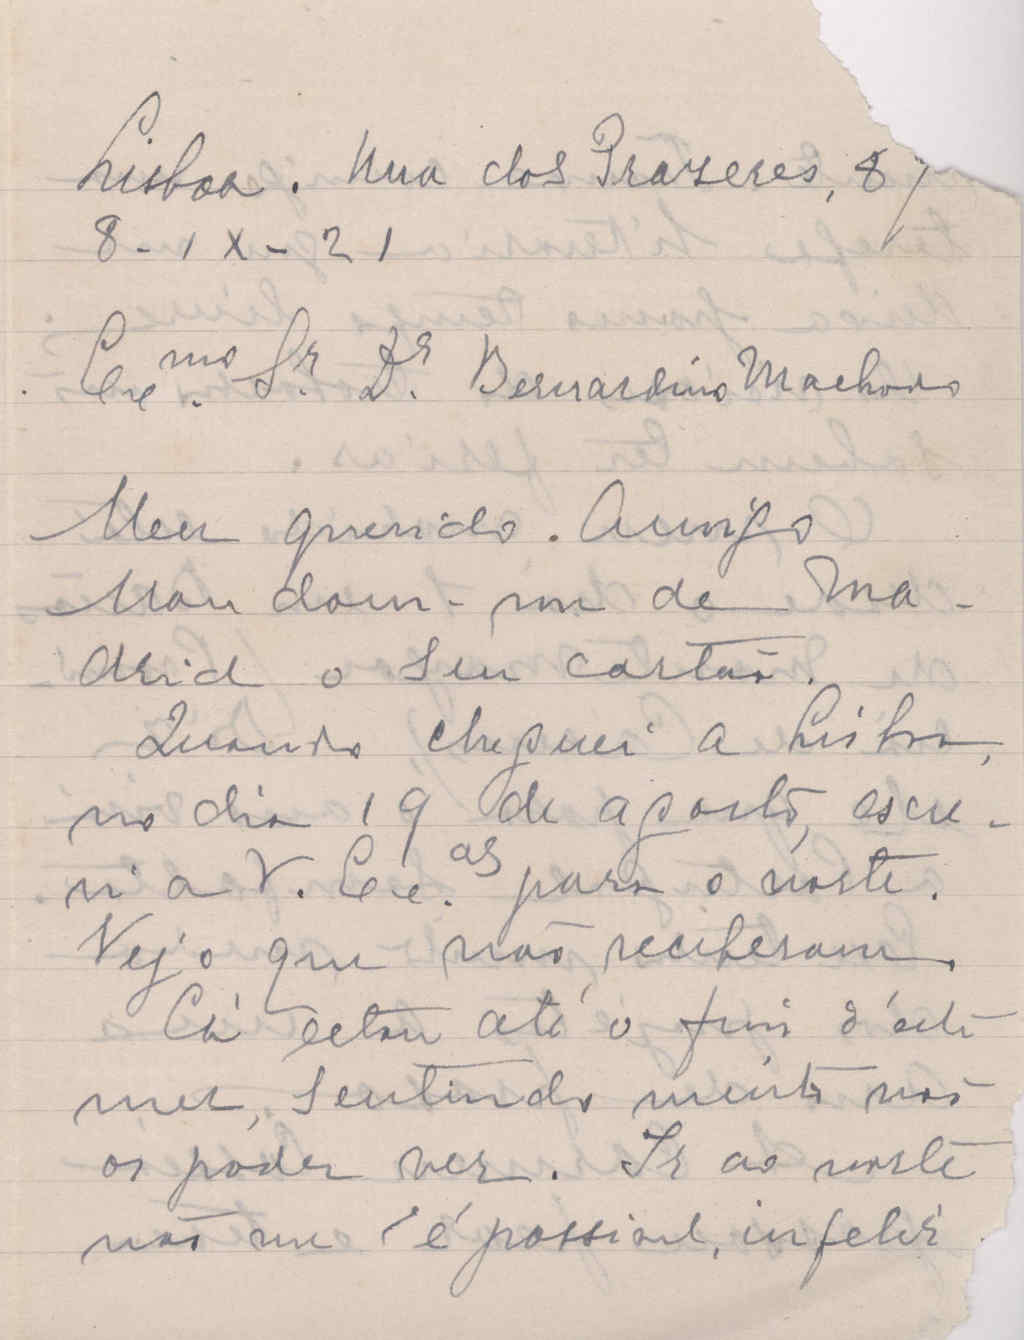 Lisboa. Rua dos Prazeres, 87
8-IX-21
Exmo. Sr. Dr. Bernardino Machado
Meu querido Amigo
Mandam-me de Ma-
drid o seu cartão.
Quando cheguei a Lisboa,
no dia 19 de agosto, escre-
vi a V. Ex.as para o norte.
Vejo que não receberam.
Cá estou até o fim d'este
mez, sentindo muito não
os poder ver. Ir ao norte
não me é possivel, infeliz